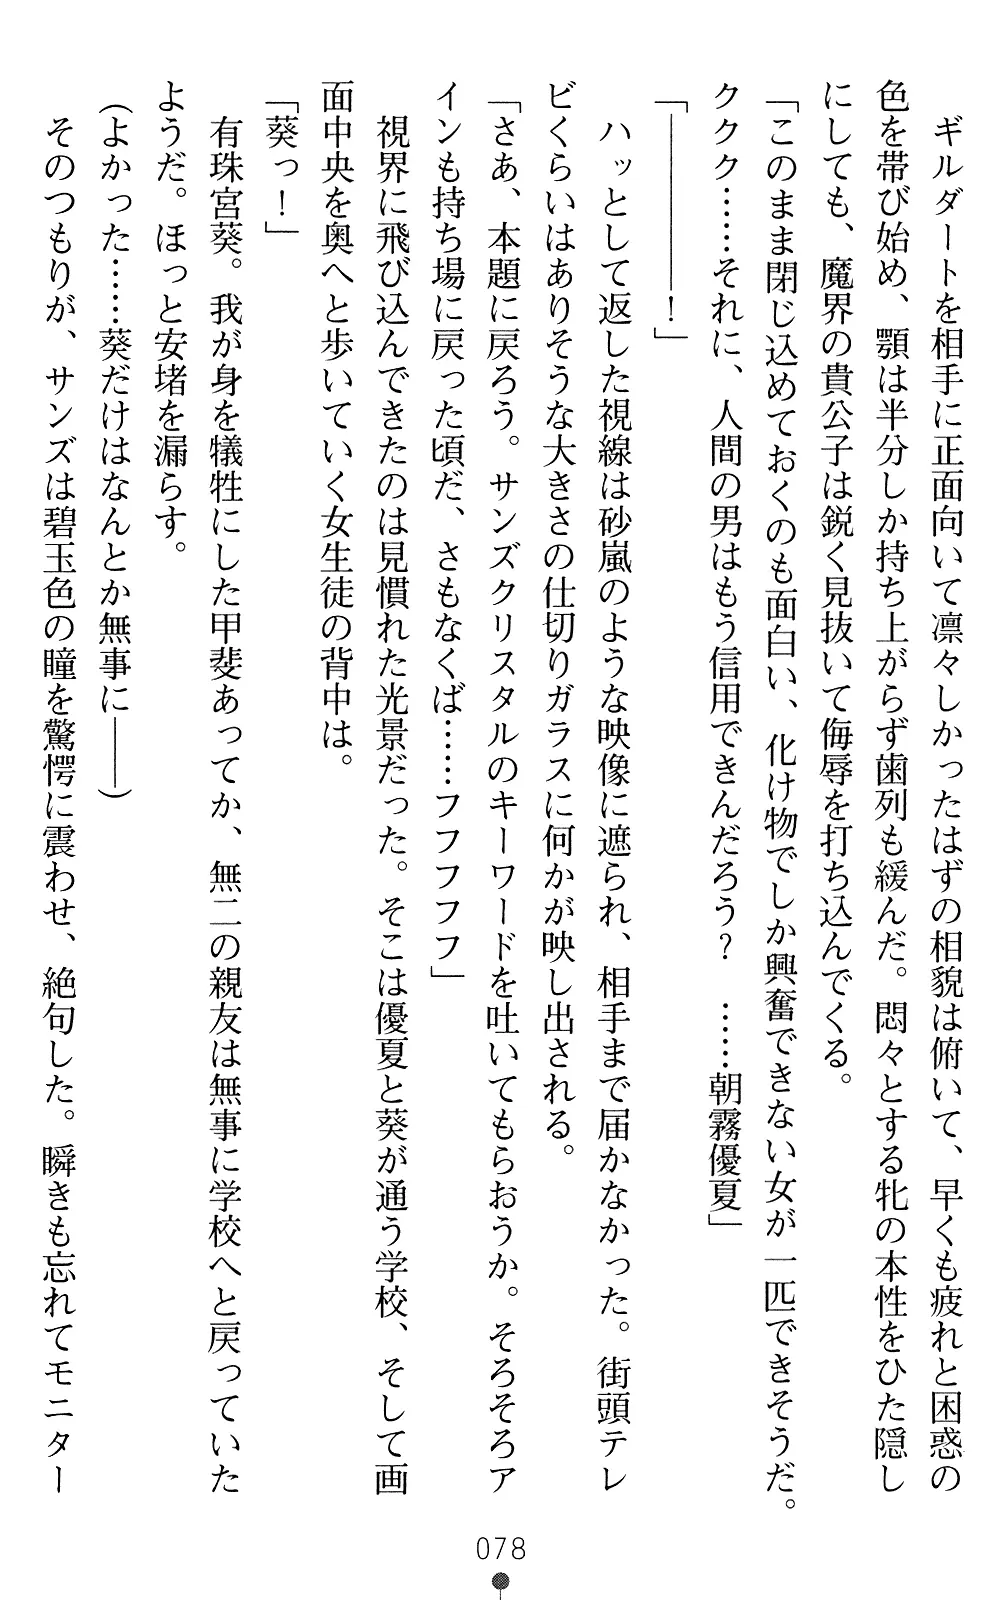 ギルダートを相手に正面向いて凛々しかったはずの相貌は俯いて、早くも疲れと困惑の
色を帯び始め、顎は半分しか持ち上がらず歯列も緩んだ。悶々とする牝の本性をひた隠し
にしても、魔界の貴公子は鋭く見抜いて侮辱を打ち込んでくる。
「このまま閉じ込めておくのも面白い、化け物でしか興奮できない女が一匹できそうだ。
ククク……それに、人間の男はもう信用できんだろう？　……朝霧優夏」
「――――！」
ハッとして返した視線は砂嵐のような映像に遮られ、相手まで届かなかった。街頭テレ
ビくらいはありそうな大きさの仕切りガラスに何かが映し出される。
「さあ、本題に戻ろう。サンズクリスタルのキーワードを吐いてもらおうか。そろそろア
インも持ち場に戻った頃だ、さもなくば……フフフフフ」
視界に飛び込んできたのは見慣れた光景だった。そこは優夏と葵が通う学校、そして画
面中央を奥へと歩いていく女生徒の背中は。
「葵っ！」
有珠宮葵。我が身を犠牲にした甲斐あってか、無二の親友は無事に学校へと戻っていた
ようだ。ほっと安堵を漏らす。
（よかった……葵だけはなんとか無事に――）
そのつもりが、サンズは碧玉色の瞳を驚愕に震わせ、絶句した。瞬きも忘れてモニター
078